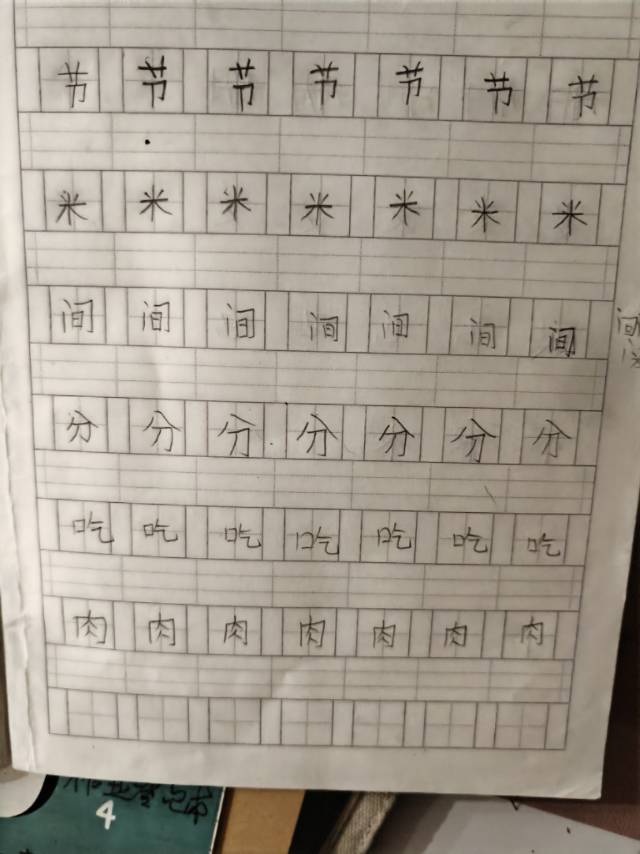 节 节 节 节 节 节 节
米 米 米 米 米 米 米
间 间 间 间 间 间 间 间
分 分 分 分 分 分 分
吃 吃 吃 吃 吃 吃 吃
肉 肉 肉 肉 肉 肉 肉
作业登记本
4